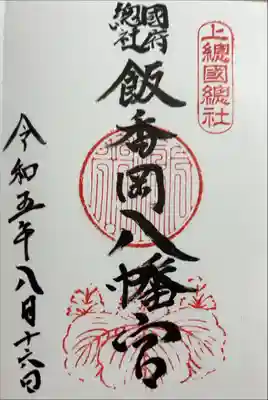 上總國總社
國府總社
飯香岡八幡宮
令和五年八月十六日